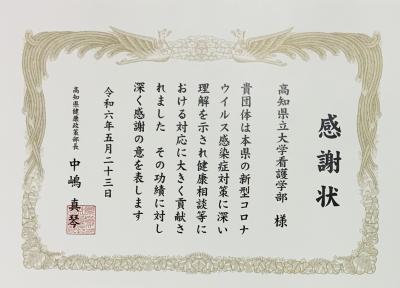 感謝状
高知県立大学看護学部 様
貴団体は本県の新型コロナ
ウイルス感染症対策に深い
理解を示され健康相談等に
おける対応に大きく貢献さ
れました その功績に対し
深く感謝の意を表します
令和六年五月二十三日
高知県健康政策部長 中嶋 真琴